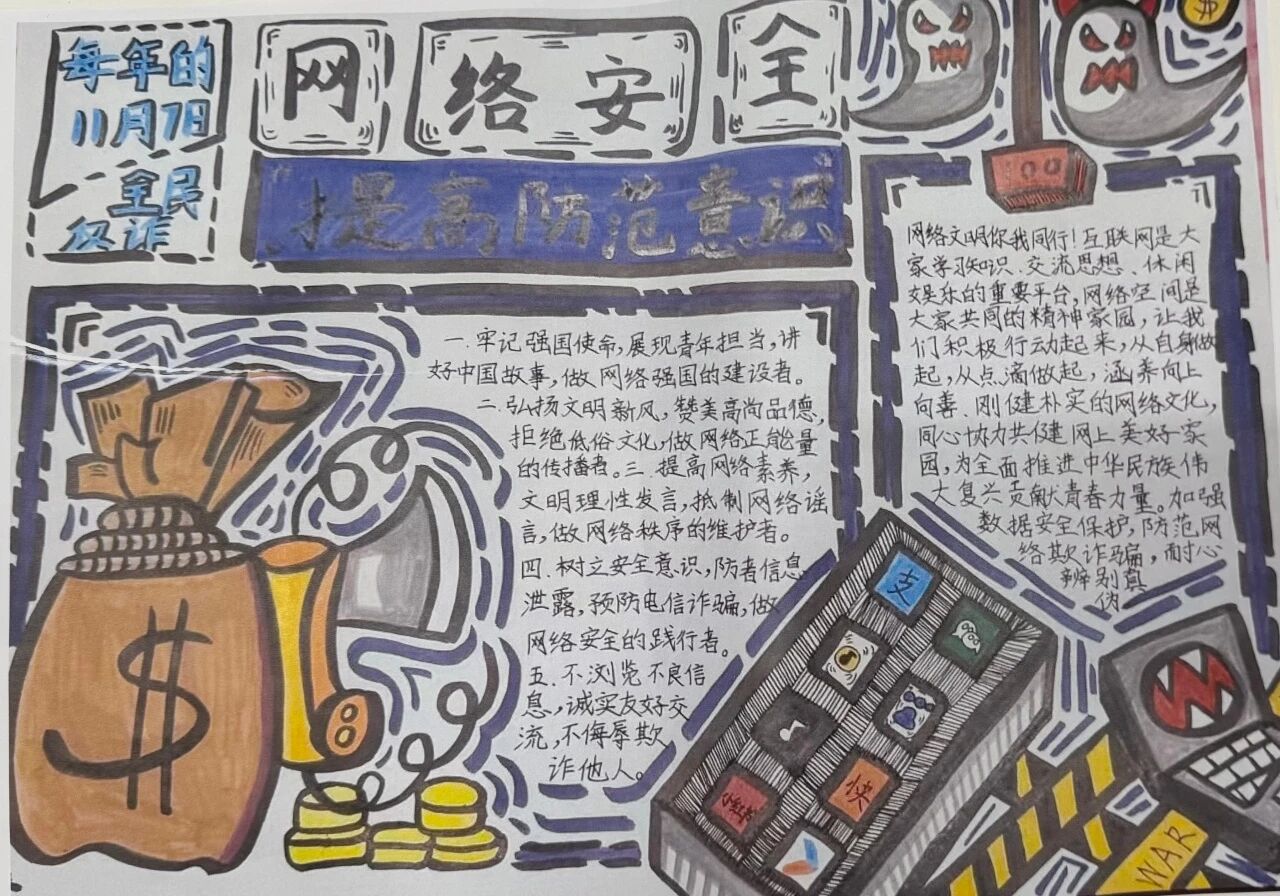 每年的
11月7日
全民
反诈
网络安全
提高防范意识
一.牢记强国使命,展现青年担当,讲
好中国故事,做网络强国的建设者。
二.弘扬文明新风,赞美高尚品德,
拒绝低俗文化,做网络正能量
的传播者。三.提高网络素养,
文明理性发言,抵制网络谣
言,做网络秩序的维护者。
四.树立安全意识,防者信息
泄露,预防电信诈骗,做
网络安全的践行者。
五.不浏览不良信
息,诚实友好交
流,不侮辱欺
诈他人。
网络文明你我同行!互联网是大
家学习知识、交流思想、休闲
娱乐的重要平台,网络空间是
大家共同的精神家园,让我
们积极行动起来,从自身做
起,从点滴做起,涵养向上
向善、刚健朴实的网络文化,
同心协力共建网上美好家
园,为全面推进中华民族伟
大复兴贡献青春力量。加强
数据安全保护,防范网
络欺诈骗,耐心
辨别真
伪
支
快
小红书
WAR
$
$